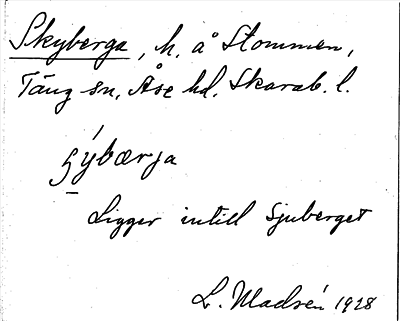 Skyberga, h. å Stommen,
Täng sn, Åse hd. Skarab. l.
ʂýbærja
Ligger intill Sjuberget
L. Madsén 1928